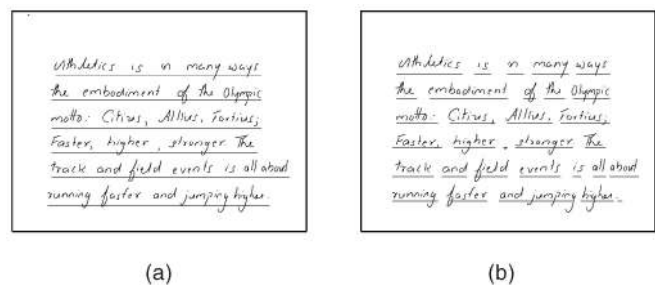 Athletics is in many ways
the embodiment of the Olympic
motto: Citius, Altius, Fortius;
Faster, higher, stronger The
track and field events is all about
running faster and jumping higher.
(a)
Athletics is in many ways
the embodiment of the Olympic
motto: Citius, Altius, Fortius;
Faster, higher, stronger The
track and field events is all about
running faster and jumping higher.
(b)